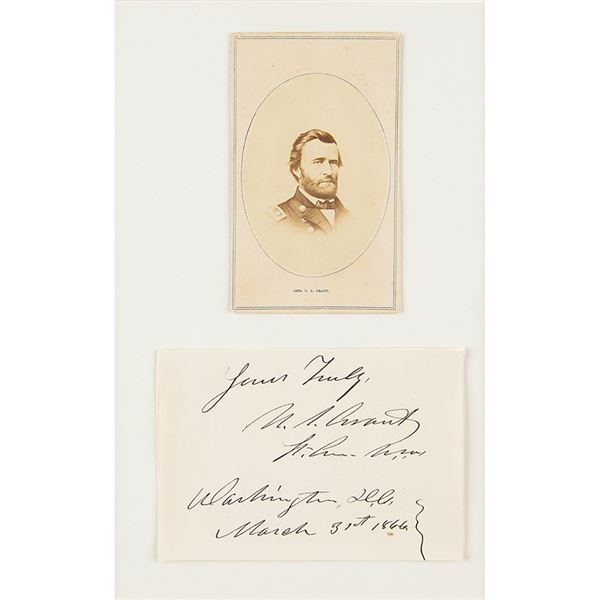 GEN. U. S. GRANT.
Yours Truly,
U. S. Grant
Lt. Gen. U.S.A.
Washington, D.C.
March 31st 1866.